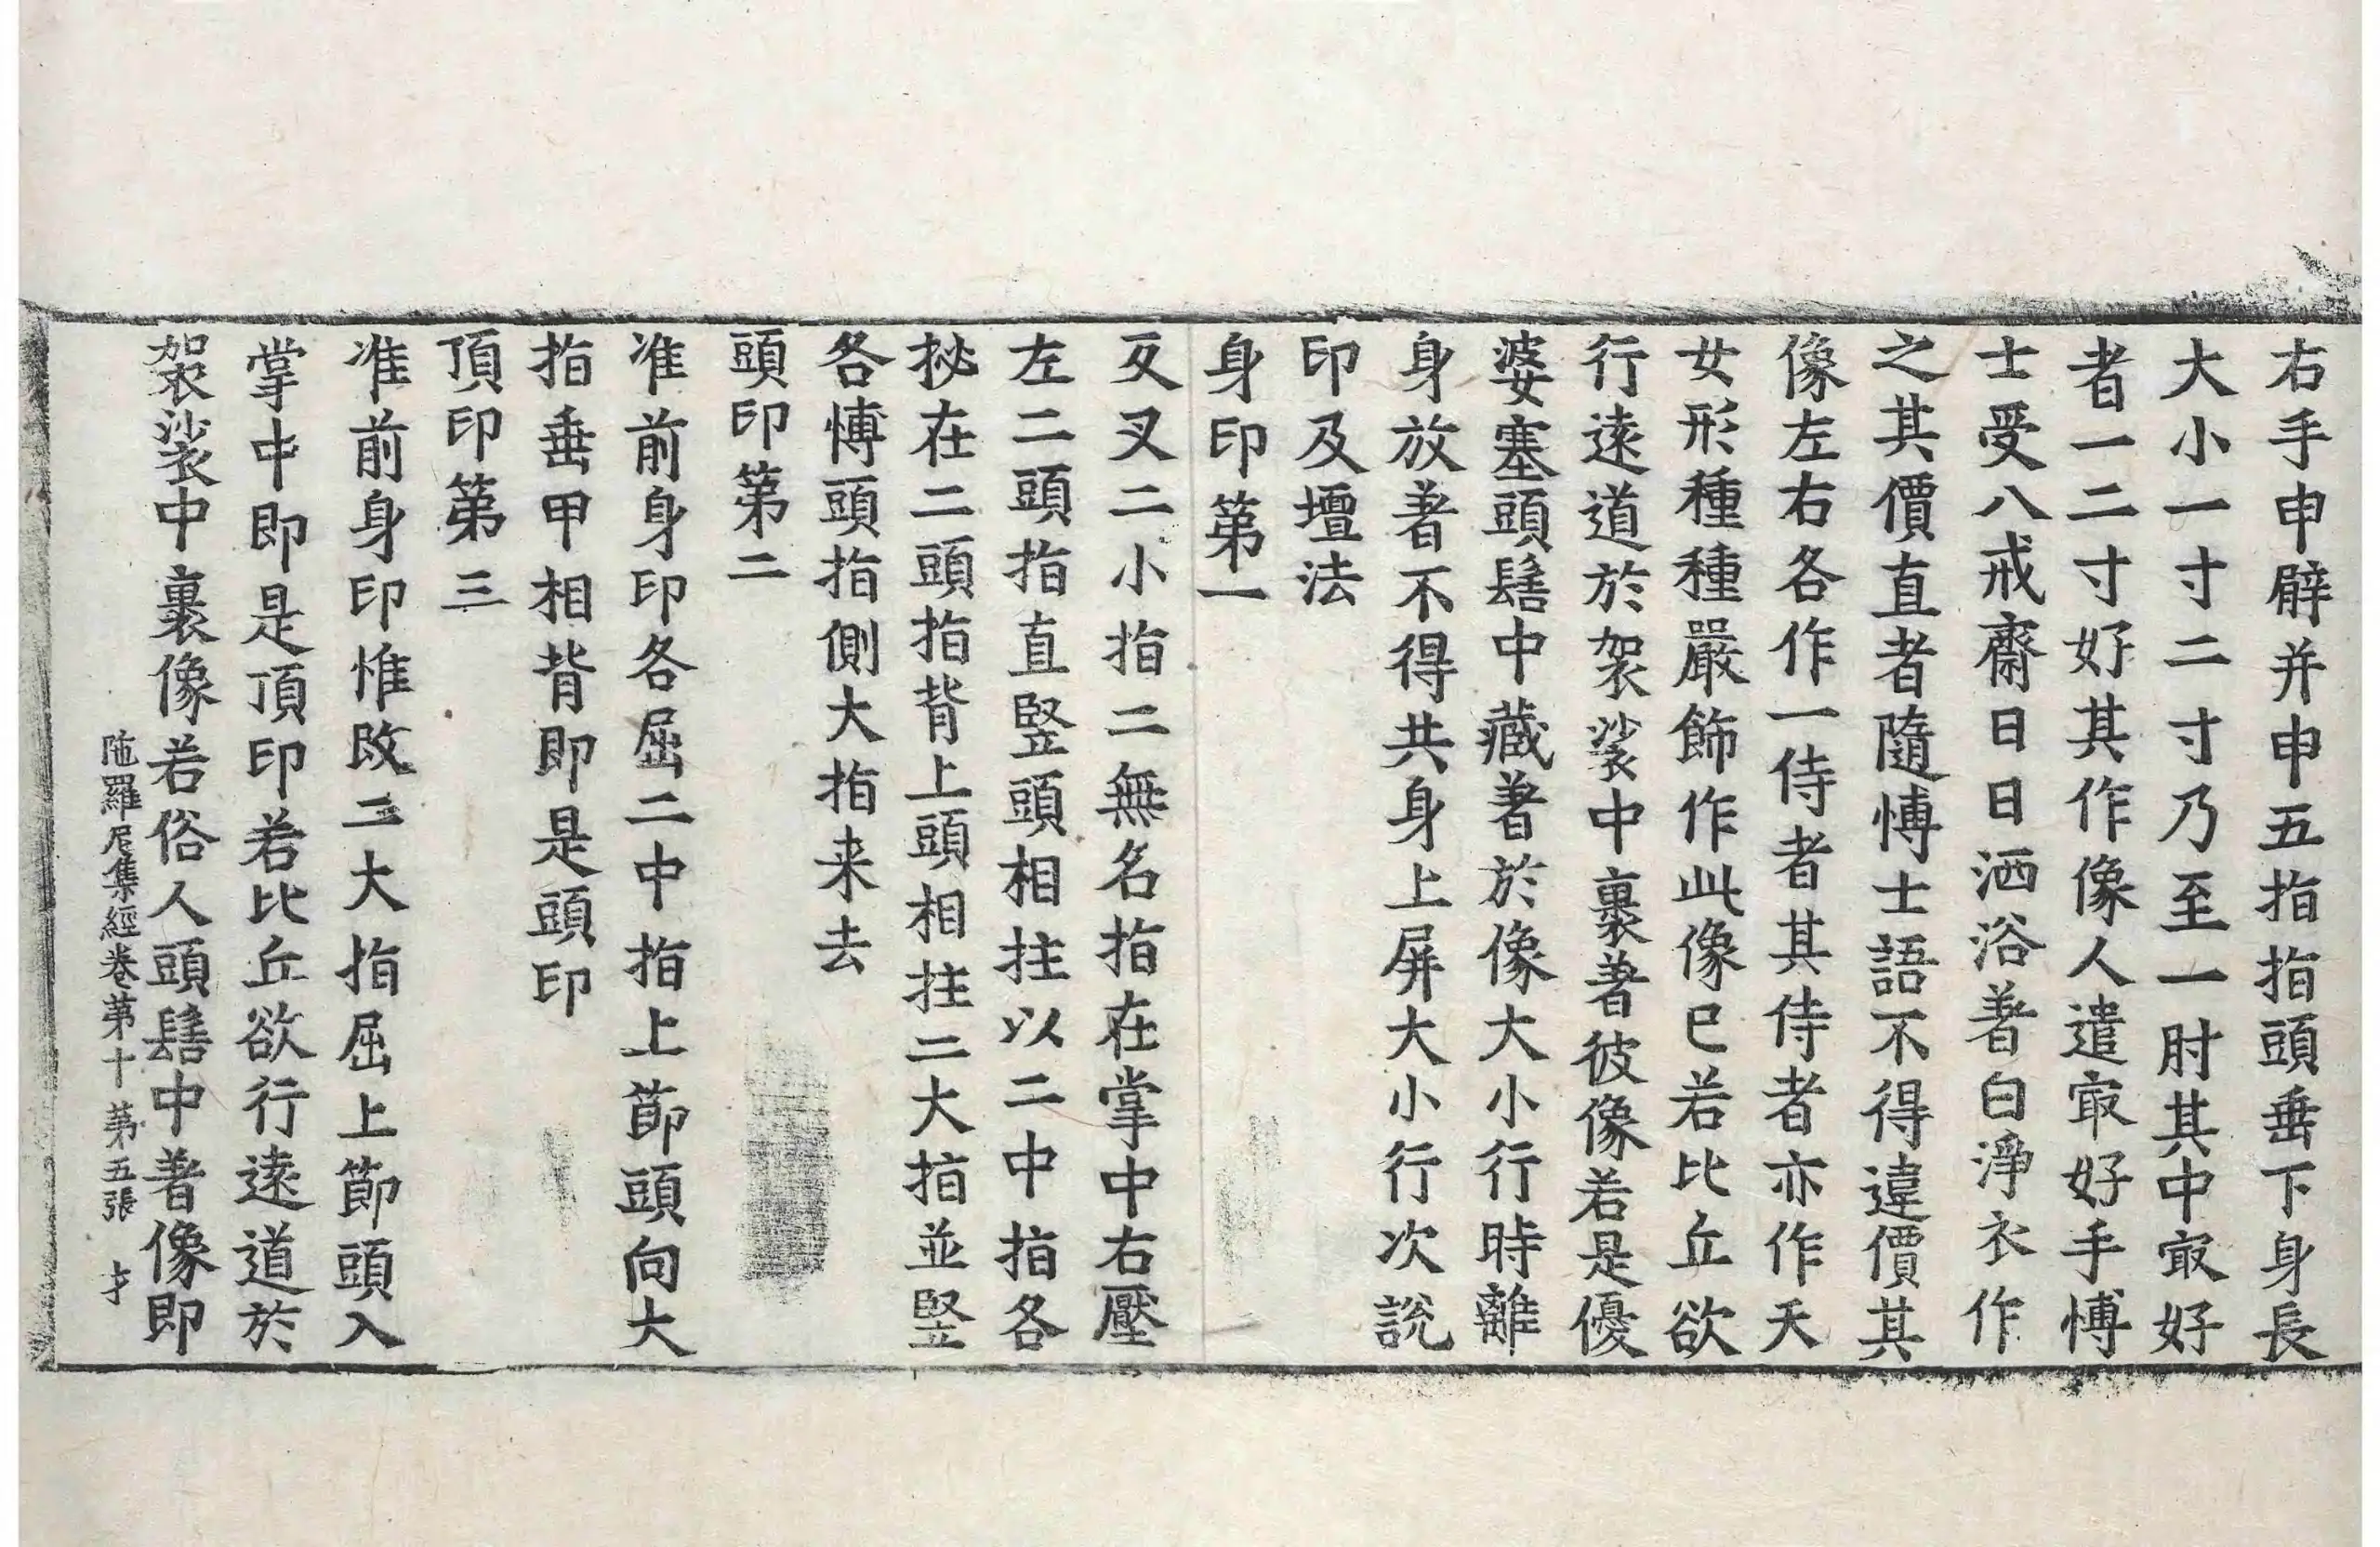 右手申臂并申五指指頭垂下身長
大小一寸二寸乃至一肘其中㝡好
者一二寸好其作像人遣㝡好手愽
士受八戒齋日日洒浴著白淨衣作
之其價直者隨愽士語不得違價其
像左右各作一侍者其侍者亦作天
女形種種嚴飾作此像已若比丘欲
行遠道於袈裟中裹著彼像若是優
婆塞頭髻中藏著於像大小行時離
身放著不得共身上屏大小行次說
印及壇法
身印第一
反叉二小指二無名指在掌中右壓
左二頭指直竪頭相拄以二中指各
拟在二頭指背上頭相拄二大指並竪
各愽頭指側大指来去
頭印第二
准前身印各屈二中指上節頭向大
指垂甲相背即是頭印
頂印第三
准前身印惟改二大指屈上節頭入
掌中即是頂印若比丘欲行遠道於
袈裟中裹像若俗人頭髻中著像即
陁羅尼集經卷第十 第五張 才